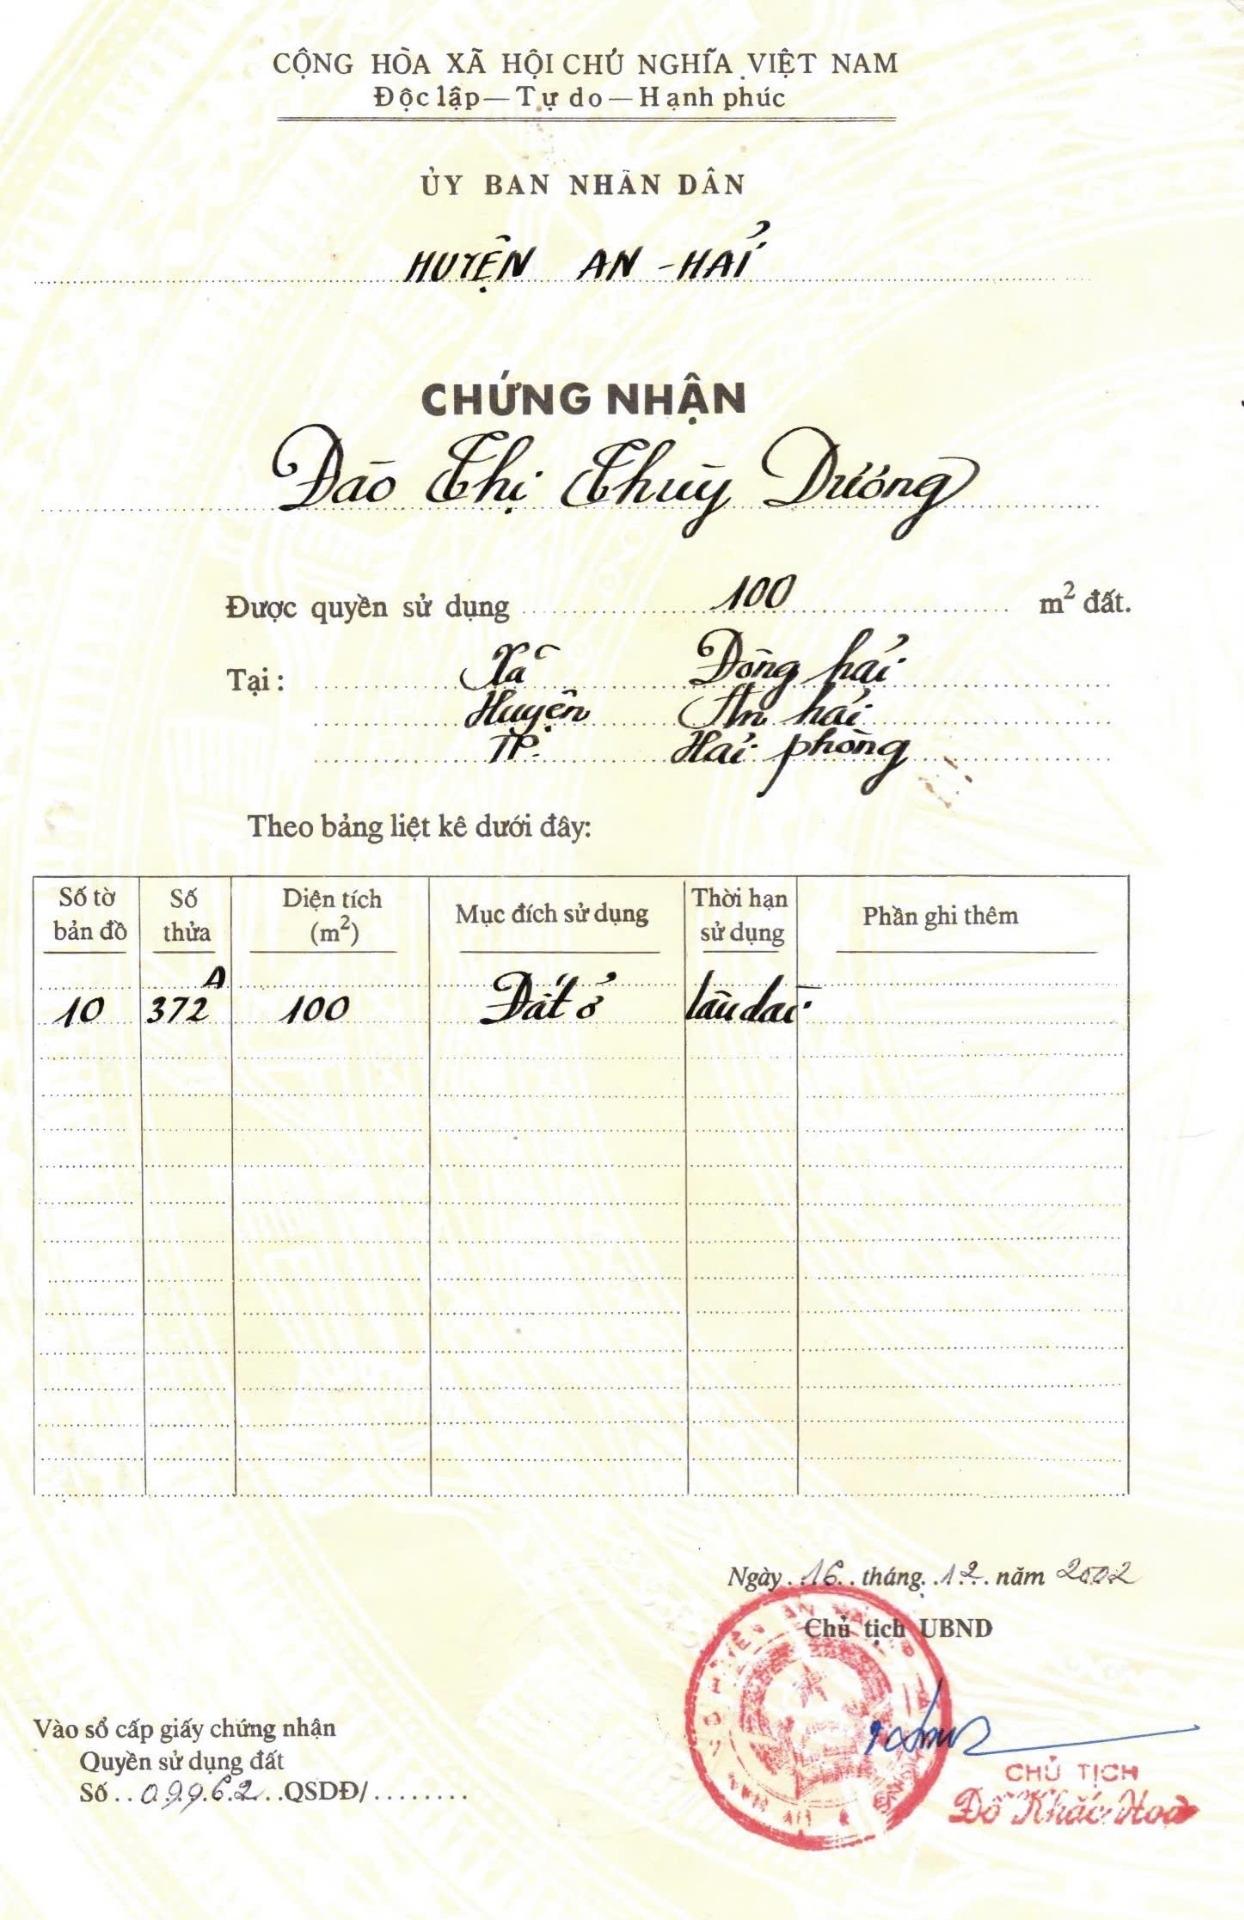 CỘNG HÒA XÃ HỘI CHỦ NGHĨA VIỆT NAM
Độc lập — Tự do — Hạnh phúc
ỦY BAN NHÂN DÂN
HUYỆN AN - HẢI
CHỨNG NHẬN
Đào Thị Thùy Dương
Được quyền sử dụng 100 m² đất.
Tại: Xã Đông hải
Huyện An hải
TP. Hải phòng
Theo bảng liệt kê dưới đây:
Số tờ bản đồ Số thửa Diện tích (m²) Mục đích sử dụng Thời hạn sử dụng Phần ghi thêm
10 372A 100 Đất ở lâu dài
Ngày 16 tháng 12 năm 2002
Chủ tịch UBND
Vào sổ cấp giấy chứng nhận
Quyền sử dụng đất
Số 09962 QSDĐ/
CHỦ TỊCH
Đỗ Khắc Hoà